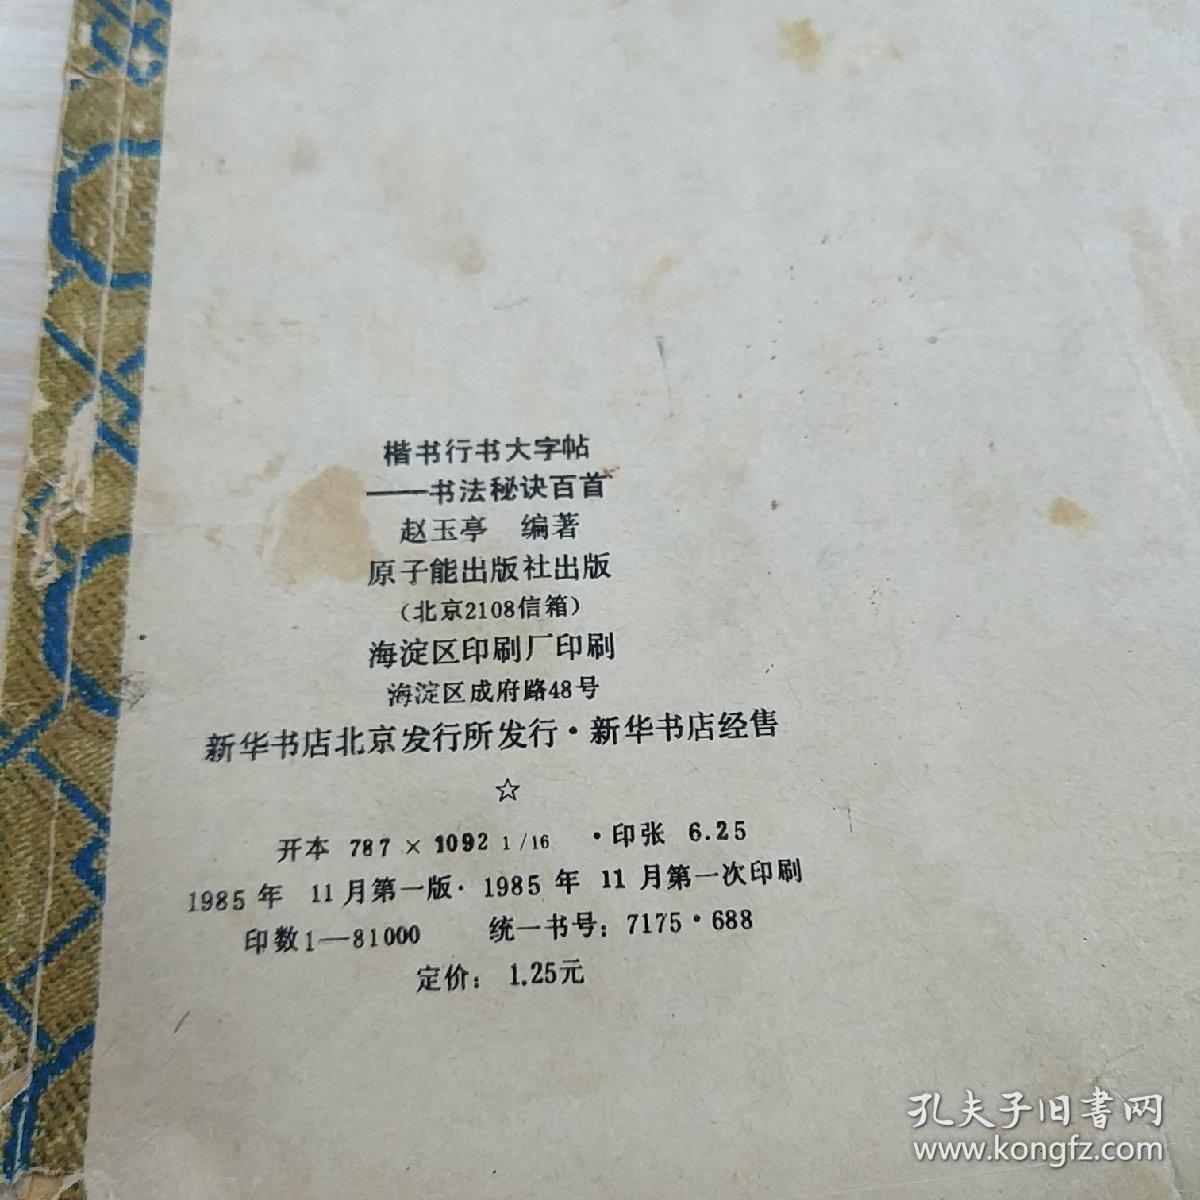 楷书行书大字帖
——书法秘诀百首
赵玉亭 编著
原子能出版社出版
（北京2108信箱）
海淀区印刷厂印刷
海淀区成府路48号
新华书店北京发行所发行·新华书店经售
☆
开本 787 × 1092 1/16 ·印张 6.25
1985 年 11 月第一版· 1985 年 11 月第一次印刷
印数1—81000 统一书号：7175·688
定价： 1.25元
孔夫子旧書网
www.kongfz.com